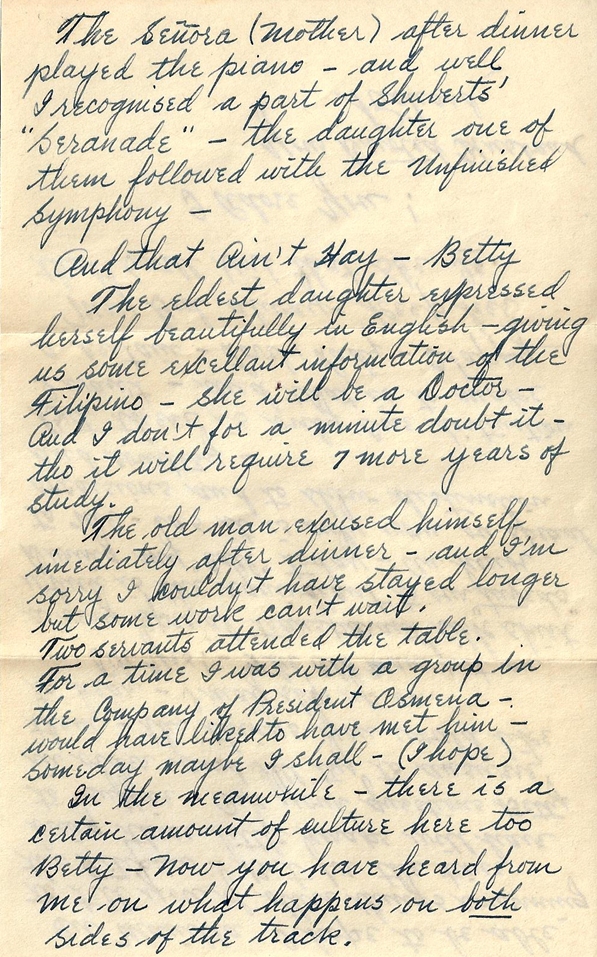 The Señora (Mother) after dinner
played the piano – and well
I recognised a part of Shuberts'
"Seranade" – the daughter one of
them followed with the Unfinished
Symphony –
And that Ain't Hay – Betty
The eldest daughter expressed
herself beautifully in English – giving
us some excellant information of the
Filipino – She will be a Doctor –
And I don't for a minute doubt it –
tho it will require 7 more years of
study.
The old man excused himself
imediately after dinner – and I'm
sorry I couldn't have stayed longer
but some work can't wait.
Two servants attended the table.
For a time I was with a group in
the Company of President Osmena –
would have liked to have met him –
someday maybe I shall – (I hope)
In the meanwhile – there is a
certain amount of culture here too
Betty – Now you have heard from
me on what happens on both
sides of the track.